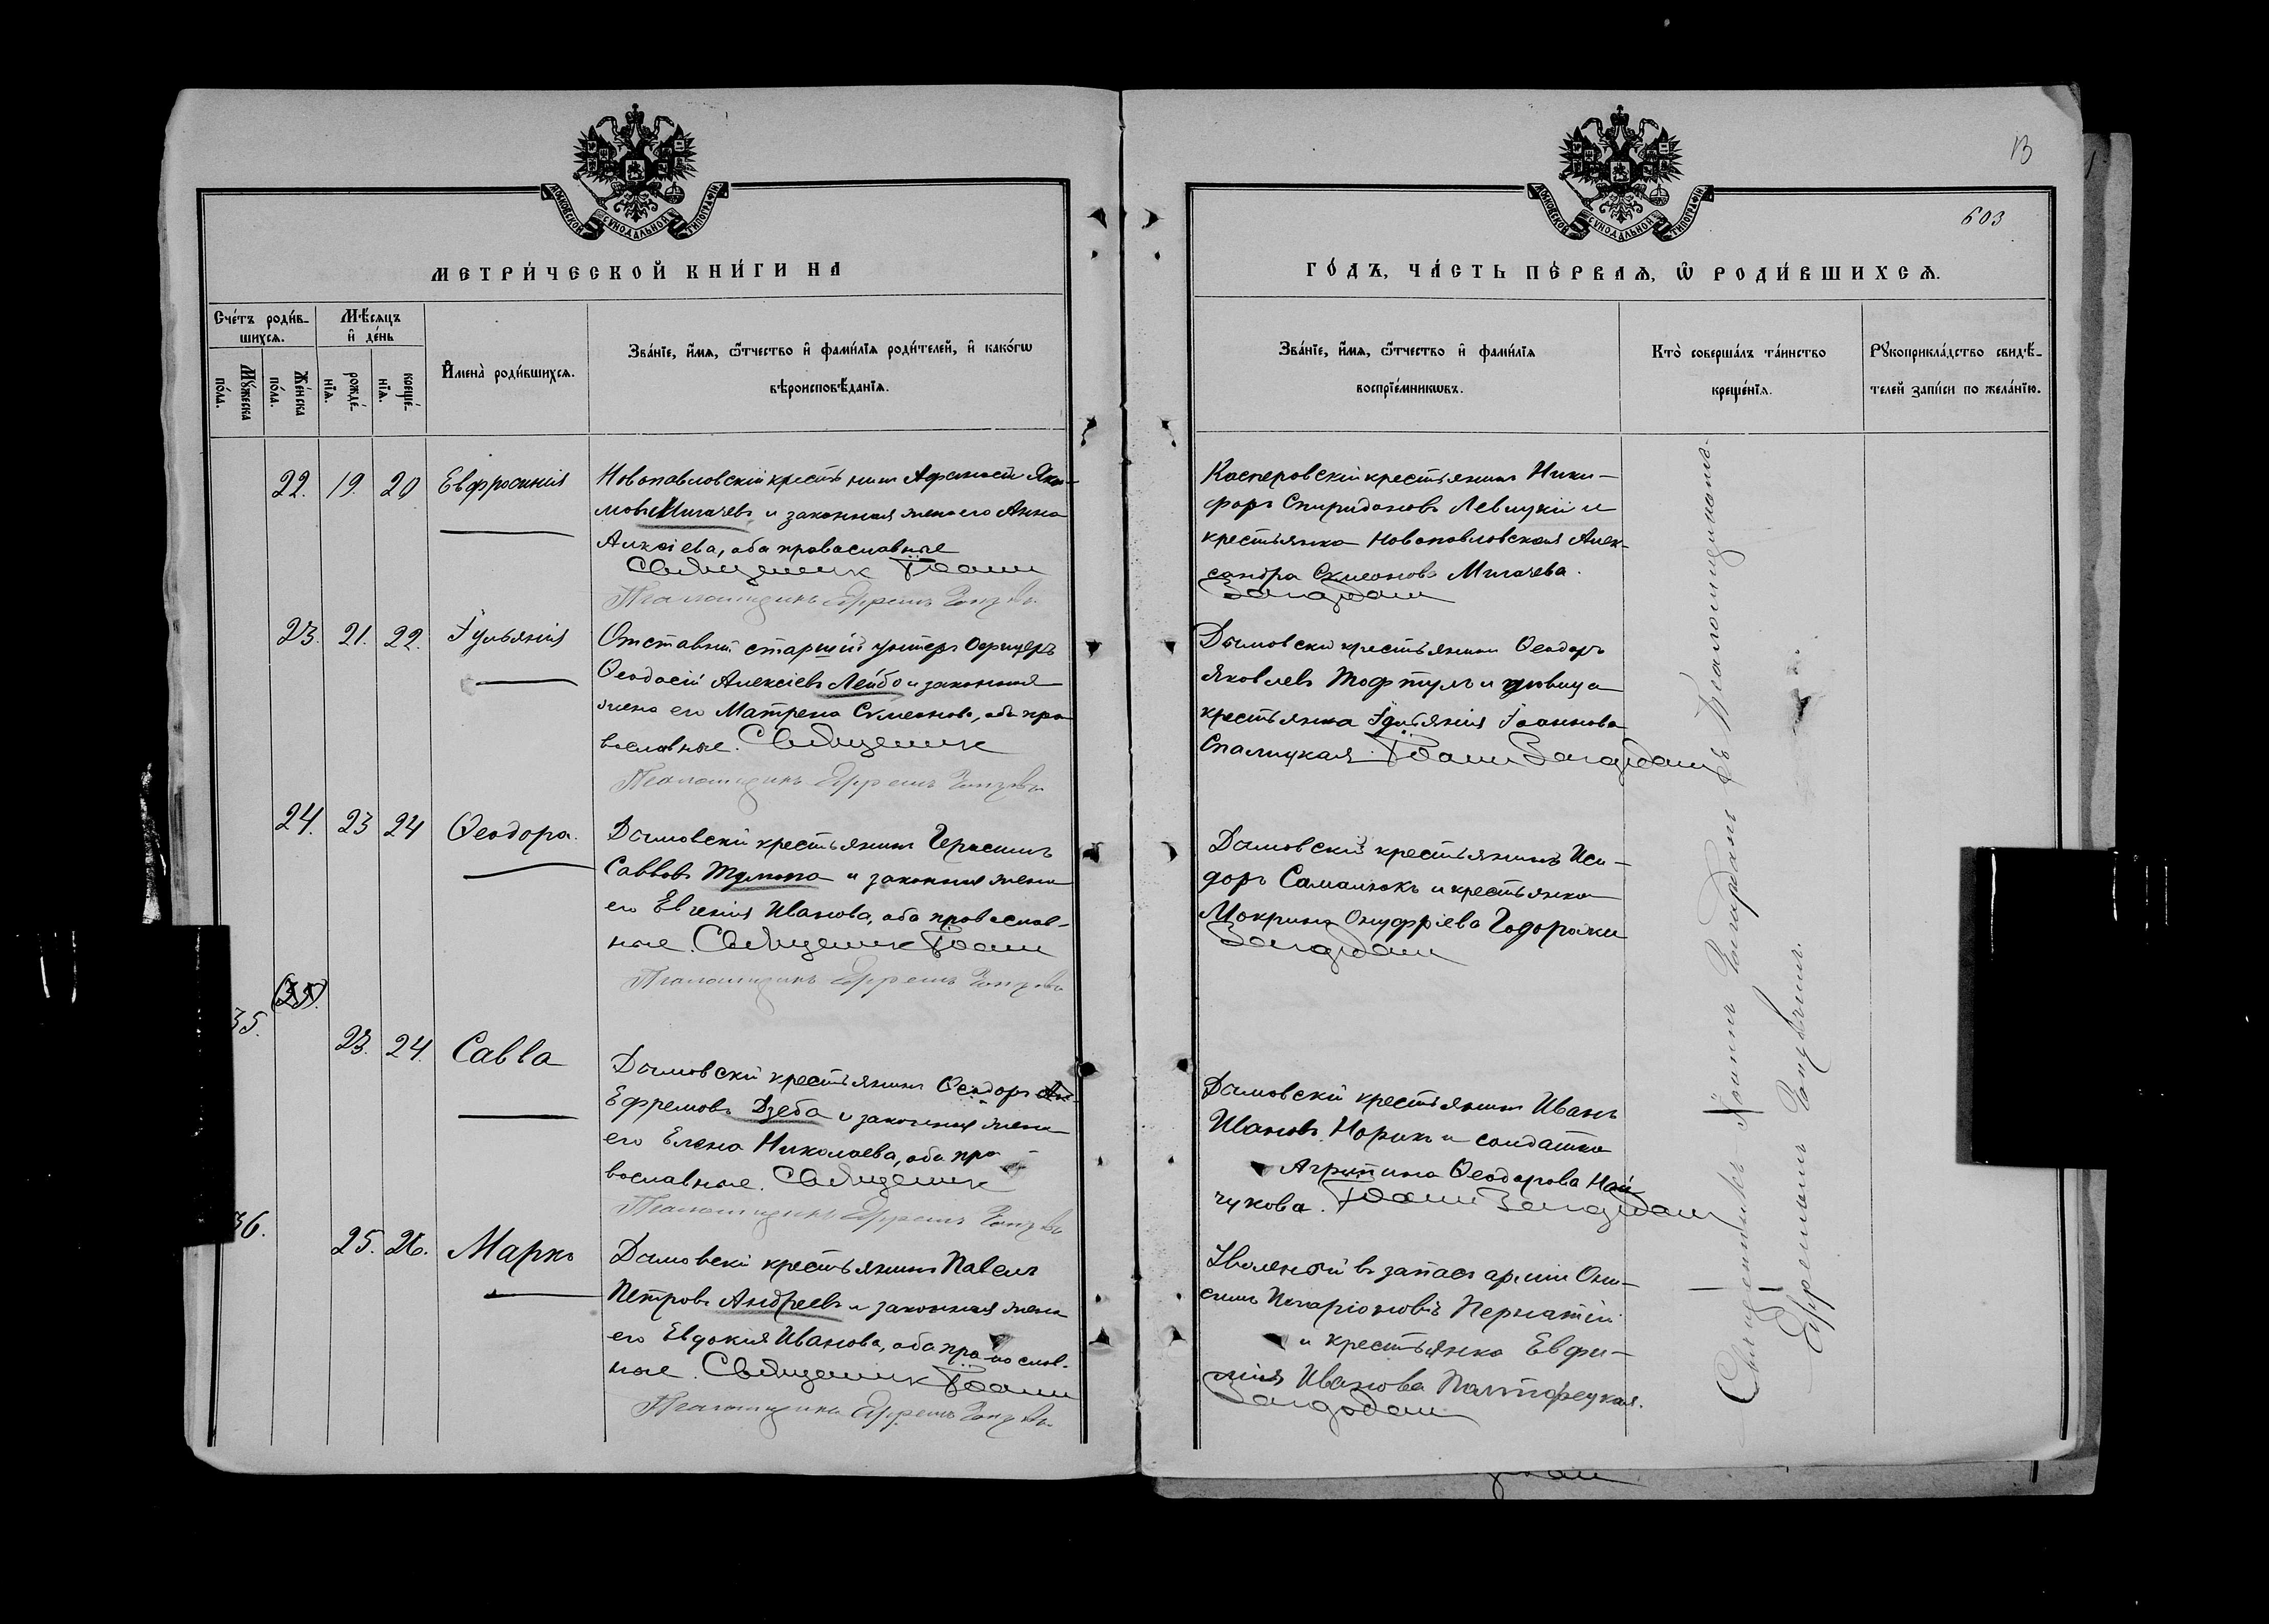 МОСКОВСКОЙ СѴНОДАЛЬНОЙ ТИПОГРАФІИ
МЕТРИ́ЧЕСКОЙ КНИ́ГИ НА
Сче́тъ роди́в-
шихсѧ.
Мѣ́сѧцъ
и҆ де́нь
Мꙋ́жеска
по́ла.
Же́нска
по́ла.
рожде́-
нїѧ.
креще́-
нїѧ.
И҆мена̀ роди́вшихсѧ.
Зва́нїе, и҆́мѧ, ѿ́чество и҆ фами́лїѧ роди́телей, и҆ како́гѡ
вѣроисповѣ́данїѧ.
22. 19. 20 Евфросинія
Новопавловскій крестьянинъ Афанасій Яки-
мовъ Мигачевъ и законная жена его Анна
Алксіева, оба православные
Священникъ Іоаннъ
Псаломщикъ Ефремъ
23. 21. 22. Іуліанія
Отставный старшій унтеръ Офицеръ
Ѳеодосій Алексіевъ Лейбо и законная
жена его Матрена Сѵмеонова, оба пра
вославные. Священникъ
Псаломщикъ Ефремъ
24. 23 24 Ѳеодора.
Дымовскій крестьянинъ Герасимъ
Саввовъ Тулюпа и законная жена
его Евгенія Иванова, оба православ-
ные. Священникъ Іоаннъ
Псаломщикъ Ефремъ
35.
23. 24. Савва
Дымовскій крестьянинъ Ѳеодоръ
Ефремовъ Дзеба и законная жена
его Елена Николаева, оба пра
вославные. Священникъ
Псаломщикъ Ефремъ
36.
25. 26. Марко
Дымовскій крестьянинъ Павелъ
Петровъ Андреевъ и законная жена
его Евдокія Иванова, оба православ-
ные. Священникъ Іоаннъ
Псаломщикъ Ефремъ
13
603
МОСКОВСКОЙ СѴНОДАЛЬНОЙ ТИПОГРАФІИ
ГО́ДЪ, ЧА́СТЬ ПЕ́РВАѦ, Ѡ҆ РОДИ́ВШИХСѦ.
Зва́нїе, и҆́мѧ, ѿ́чество и҆ фами́лїѧ
воспрїе́мникѡвъ.
Кто̀ соверша́лъ та́инство
креще́нїѧ.
Рꙋкоприкла́дство свидѣ́-
телей за́писи по жела́нїю.
Касперовскій крестьянинъ Ники-
форъ Спиридоновъ Левицкій и
крестьянка Новопавловская Алек-
сандра Сѵмеонова Мигачева.
Дымовскій крестьянинъ Ѳеодоръ
Яковлевъ Тофтулъ и дѣвица
крестьянка Іуліанія Іоаннова
Спалицкая. Іоаннъ
Дымовскій крестьянинъ Иси-
доръ Самалюкъ и крестьянка
Мокрина Онуфріева
Дымовскій крестьянинъ Иванъ
Ивановъ Норикъ и солдатка
Агрипина Ѳеодорова Най
чукова. Іоаннъ
Уволеный въ запасъ арміи Они-
симъ Иларіоновъ Пернатій
и крестьянка Евфи-
мія Иванова Полторецкая.
Священникъ Іоаннъ съ Псаломщикомъ
Ефремомъ